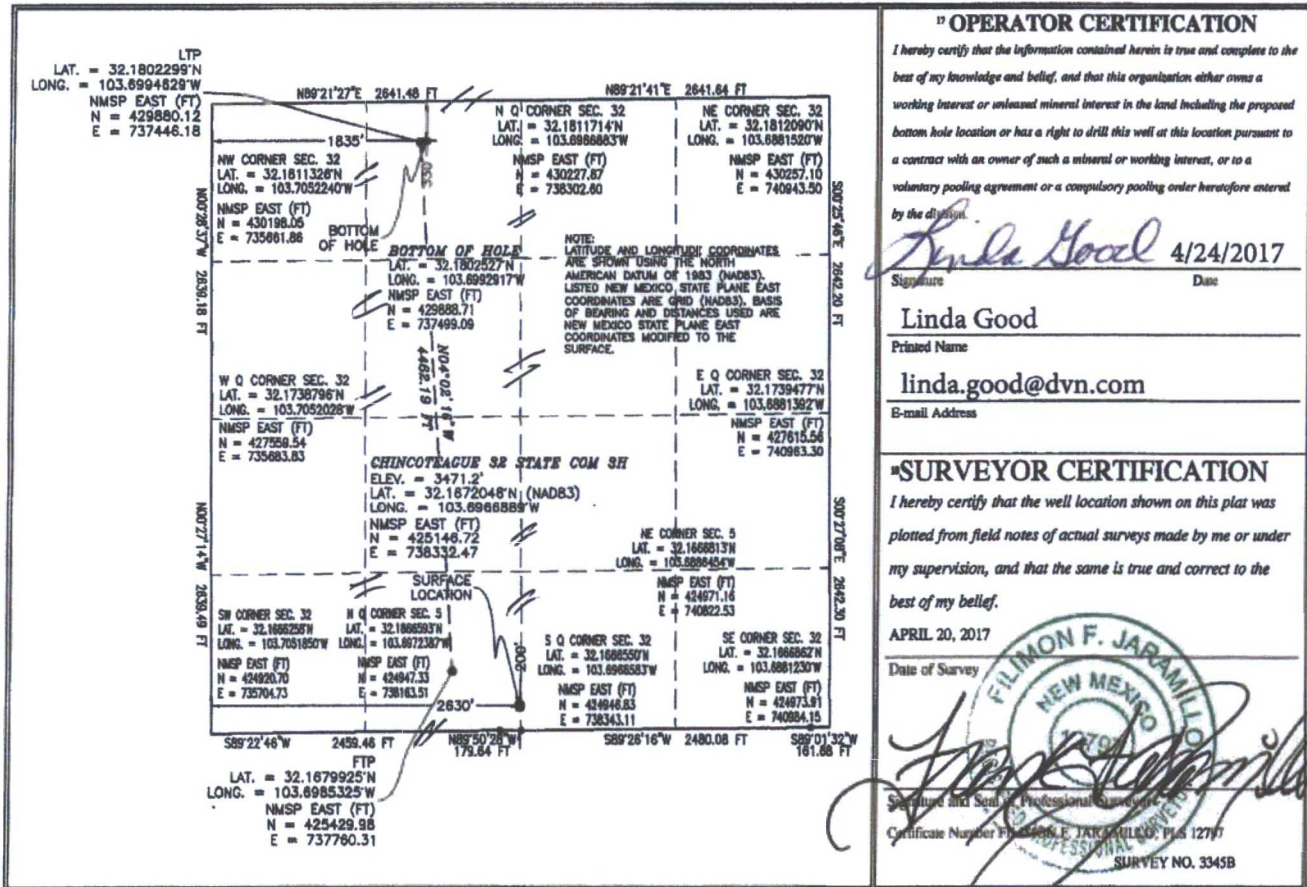 LTP
LAT. = 32.1802299'N
LONG. = 103.6994629'W
NMSP EAST (FT)
N = 429880.12
E = 737446.18
N89'21'27"E 2641.48 FT
N89'21'41"E 2641.64 FT
1835'
330'
NW CORNER SEC. 32
LAT. = 32.1811326'N
LONG. = 103.7052240'W
NMSP EAST (FT)
N = 430198.05
E = 735661.86
N Q CORNER SEC. 32
LAT. = 32.1811714'N
LONG. = 103.6966683'W
NMSP EAST (FT)
N = 430227.67
E = 738302.60
NE CORNER SEC. 32
LAT. = 32.1812090'N
LONG. = 103.6881520'W
NMSP EAST (FT)
N = 430257.10
E = 740943.50
N00'28'37"W 2639.18 FT
S00'25'46"E 2642.20 FT
BOTTOM
OF HOLE
BOTTOM OF HOLE
LAT. = 32.1802527'N
LONG. = 103.6992917'W
NMSP EAST (FT)
N = 429888.71
E = 737499.09
NOTE:
LATITUDE AND LONGITUDE COORDINATES
ARE SHOWN USING THE NORTH
AMERICAN DATUM OF 1983 (NAD83).
LISTED NEW MEXICO STATE PLANE EAST
COORDINATES ARE GRID (NAD83). BASIS
OF BEARING AND DISTANCES USED ARE
NEW MEXICO STATE PLANE EAST
COORDINATES MODIFIED TO THE
SURFACE.
N04°02'16"W
4462.19 FT
W Q CORNER SEC. 32
LAT. = 32.1738796'N
LONG. = 103.7052028'W
NMSP EAST (FT)
N = 427559.54
E = 735683.83
E Q CORNER SEC. 32
LAT. = 32.1739477'N
LONG. = 103.6881392'W
NMSP EAST (FT)
N = 427615.56
E = 740963.30
CHINCOTEAGUE 32 STATE COM 3H
ELEV. = 3471.2'
LAT. = 32.1672046'N (NAD83)
LONG. = 103.6966889'W
NMSP EAST (FT)
N = 425146.72
E = 738332.47
N00'27'14"W 2639.49 FT
S00'27'08"E 2642.30 FT
NE CORNER SEC. 5
LAT. = 32.1666813'N
LONG. = 103.6886454'W
NMSP EAST (FT)
N = 424971.16
E = 740822.53
SURFACE
LOCATION
SW CORNER SEC. 32
LAT. = 32.1666258'N
LONG. = 103.7051850'W
NMSP EAST (FT)
N = 424920.70
E = 735704.73
N Q CORNER SEC. 5
LAT. = 32.1666593'N
LONG. = 103.6972387'W
NMSP EAST (FT)
N = 424947.33
E = 738163.51
200'
2630'
S Q CORNER SEC. 32
LAT. = 32.1666550'N
LONG. = 103.6966583'W
NMSP EAST (FT)
N = 424946.83
E = 738343.11
SE CORNER SEC. 32
LAT. = 32.1666862'N
LONG. = 103.6881230'W
NMSP EAST (FT)
N = 424973.91
E = 740984.15
S89'22'46"W 2459.46 FT
N89'50'28"W
179.64 FT
S89'26'16"W 2480.08 FT
S89'01'32"W
161.68 FT
FTP
LAT. = 32.1679925'N
LONG. = 103.6985325'W
NMSP EAST (FT)
N = 425429.98
E = 737760.31
17 OPERATOR CERTIFICATION
I hereby certify that the information contained herein is true and complete to the
best of my knowledge and belief, and that this organization either owns a
working interest or unleased mineral interest in the land including the proposed
bottom hole location or has a right to drill this well at this location pursuant to
a contract with an owner of such a mineral or working interest, or to a
voluntary pooling agreement or a compulsory pooling order heretofore entered
by the division.
Linda Good 4/24/2017
Signature Date
Linda Good
Printed Name
linda.good@dvn.com
E-mail Address
18 SURVEYOR CERTIFICATION
I hereby certify that the well location shown on this plat was
plotted from field notes of actual surveys made by me or under
my supervision, and that the same is true and correct to the
best of my belief.
APRIL 20, 2017
Date of Survey
FILIMON F. JARAMILLO
NEW MEXICO
12797
PROFESSIONAL SURVEYOR
Signature and Seal of Professional Surveyor
Certificate Number FILIMON F. JARAMILLO, PLS 12797
SURVEY NO. 3345B